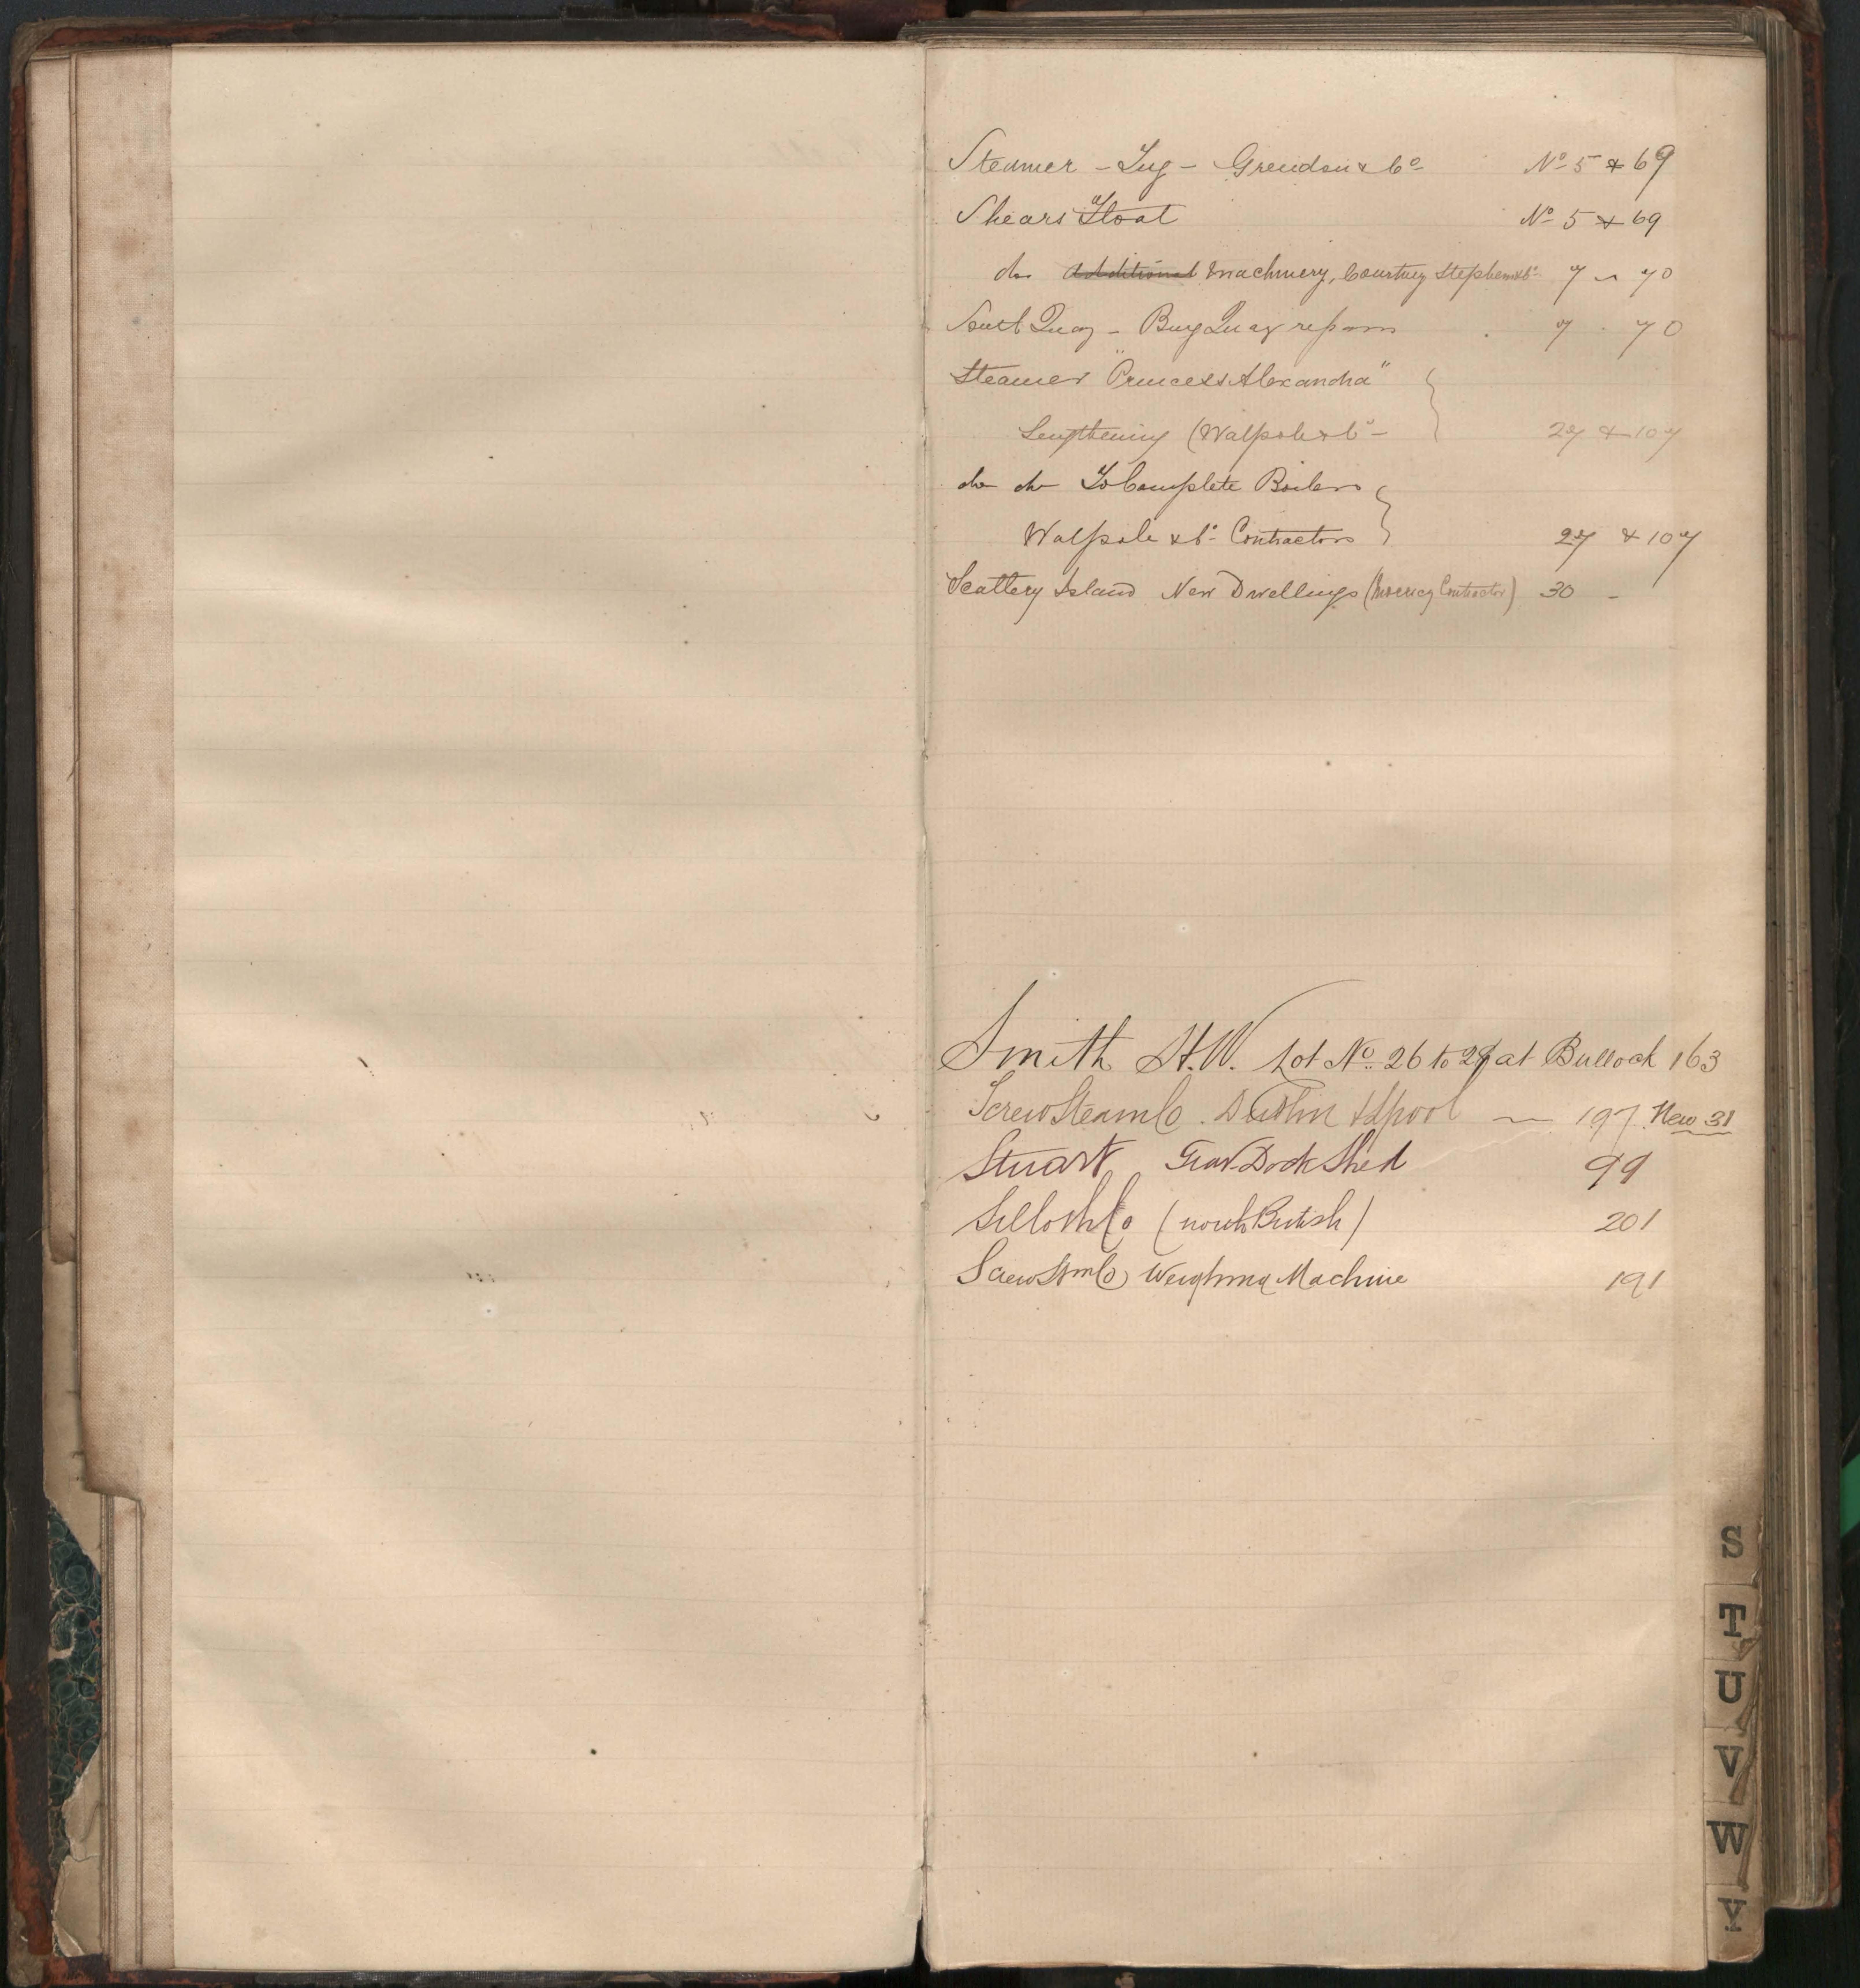 Steamer - Tug - Grendon & Co No 5 & 69
Shears Float No 5 & 69
do Additional Machinery, Courtney Stephens & Co 7 " 70
South Quay - Quay repairs 7 . 70
Steamer "Princess Alexandra"
Lengthening (Walpole & Co - 27 & 107
do do To Complete Boilers
Walpole & Co Contractors 27 & 107
Scattery Island New Dwellings ( Contractor) 30 -
Smith H.W. Lot No 26 to 28 at Bullock 163
Screw Steam Co. Dublin & Lpool — 197 New 31
Stuart Grav. Dock Shed 99
Silloth Co (north British) 201
Screw Stm Co Weighing Machine 191
S
T
U
V
W
Y